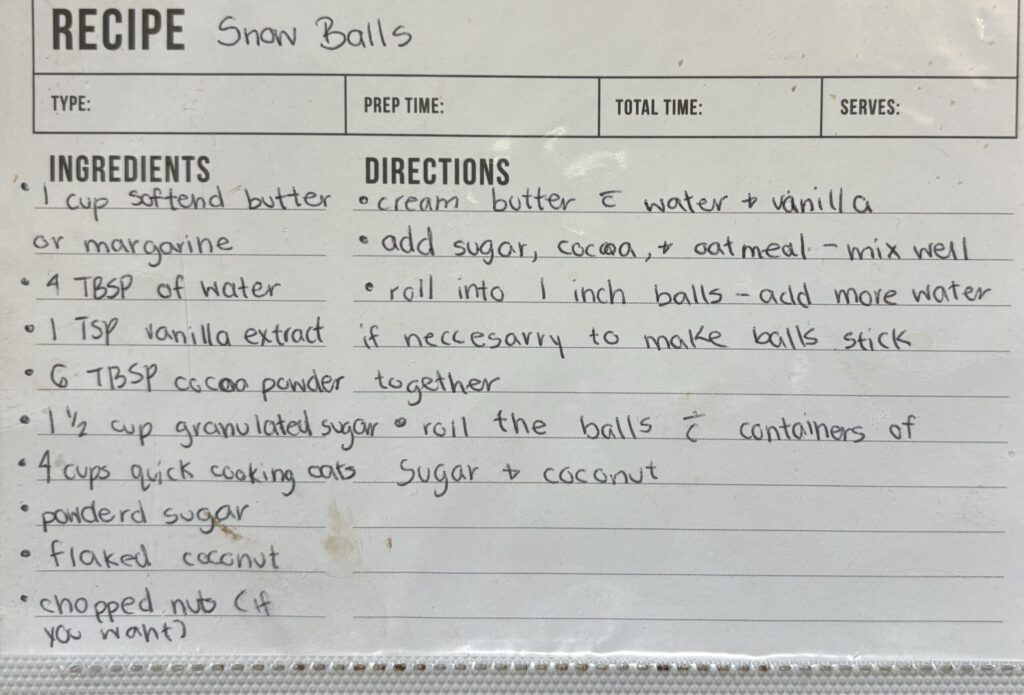 RECIPE Snow Balls
TYPE: PREP TIME: TOTAL TIME: SERVES:
INGREDIENTS
• 1 cup softend butter
or margarine
• 4 TBSP of water
• 1 TSP vanilla extract
• 6 TBSP cocoa powder
• 1 1/2 cup granulated sugar
• 4 cups quick cooking oats
• powderd sugar
• flaked coconut
• chopped nuts (if
you want)
DIRECTIONS
• cream butter c̄ water + vanilla
• add sugar, cocoa, + oatmeal - mix well
• roll into 1 inch balls - add more water
if neccesarry to make balls stick
together
• roll the balls c̄ containers of
sugar + coconut